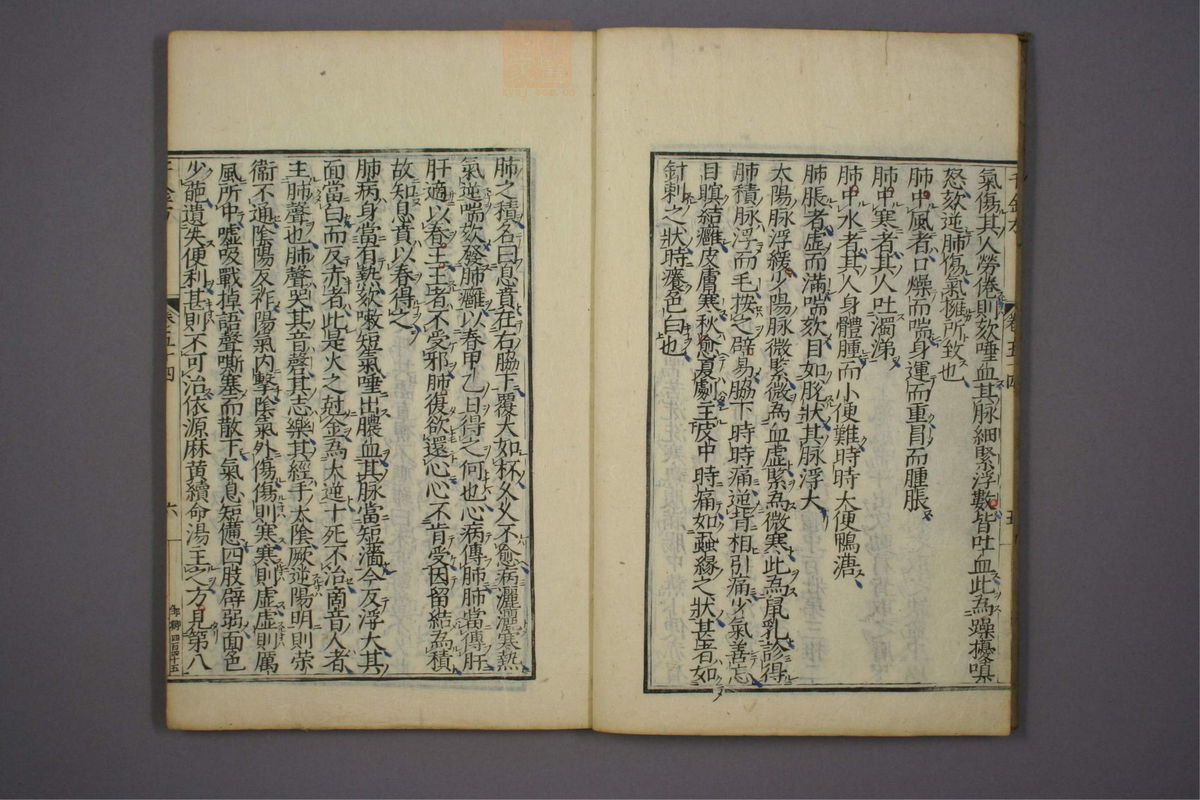 氣傷其人勞倦則欬唾血其脉細緊浮數皆吐血此為躁擾嗔
怒欬逆肺傷氣擁所致也
肺中風者口燥而喘身運而重冒而腫脹
肺中寒者其人吐濁涕
肺中水者其人身體腫而小便難時時大便鴨溏
肺脹者虚而滿喘欬目如脫狀其脉浮大
太陽脉浮緩少陽脉微緊微為血虚緊為微寒此為鼠乳診得
肺積脉浮而毛按之辟易脇下時時痛逆背相引痛少氣善忘
目瞑結癰皮膚寒秋愈夏劇主皮中時痛如蝨緣之狀甚者如
針刺之狀時癢色白也
卷之五十四
肺之積名曰息賁在右脇下覆大如杯久久不愈病灑灑寒熱
氣逆喘欬發肺癰以春甲乙日得之何也心病傳肺肺當傳肝
肝適以春王王者不受邪肺復欲還心心不肯受因留結為積
故知息賁以春得之
肺病身當有熱欬嗽短氣唾出膿血其脉當短濇今反浮大其
面當白而反赤者此是火之尅金為大逆十死不治商音人者
主肺聲也肺聲哭其音磬其志樂其經手太陰厥逆陽明則荣
衞不通陰陽反祚陽氣内擊陰氣外傷傷則寒寒則虚虚則厲
風所中嘘吸戰掉語聲嘶塞而散下氣息短憊四肢僻弱面色
少葩遺失便利甚則不可治依源麻黄續命湯主之方見第八
六